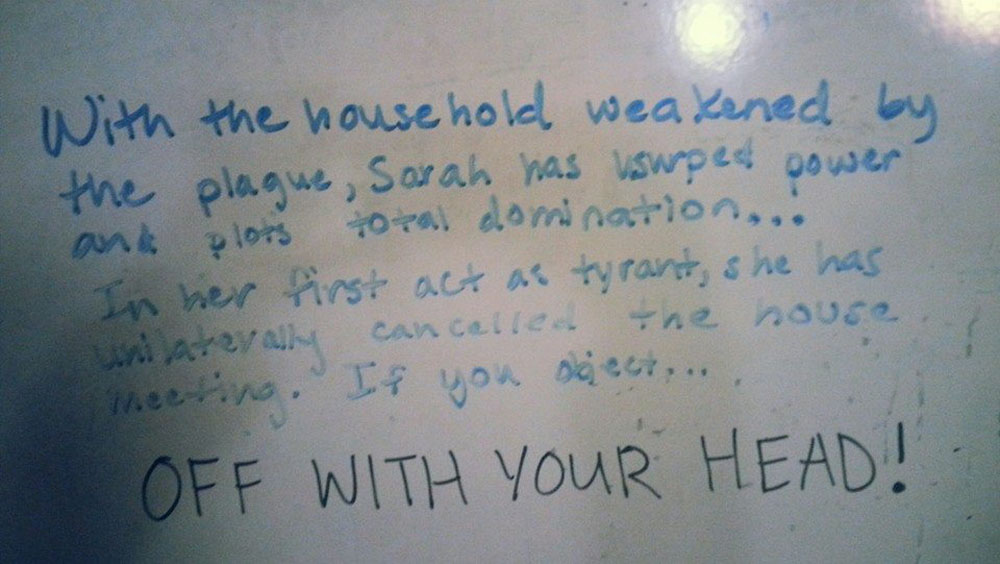 With the household weakened by
the plague, Sarah has usurped power
and plots total domination...
In her first act as tyrant, she has
unilaterally cancelled the house
meeting. If you object...
OFF WITH YOUR HEAD!